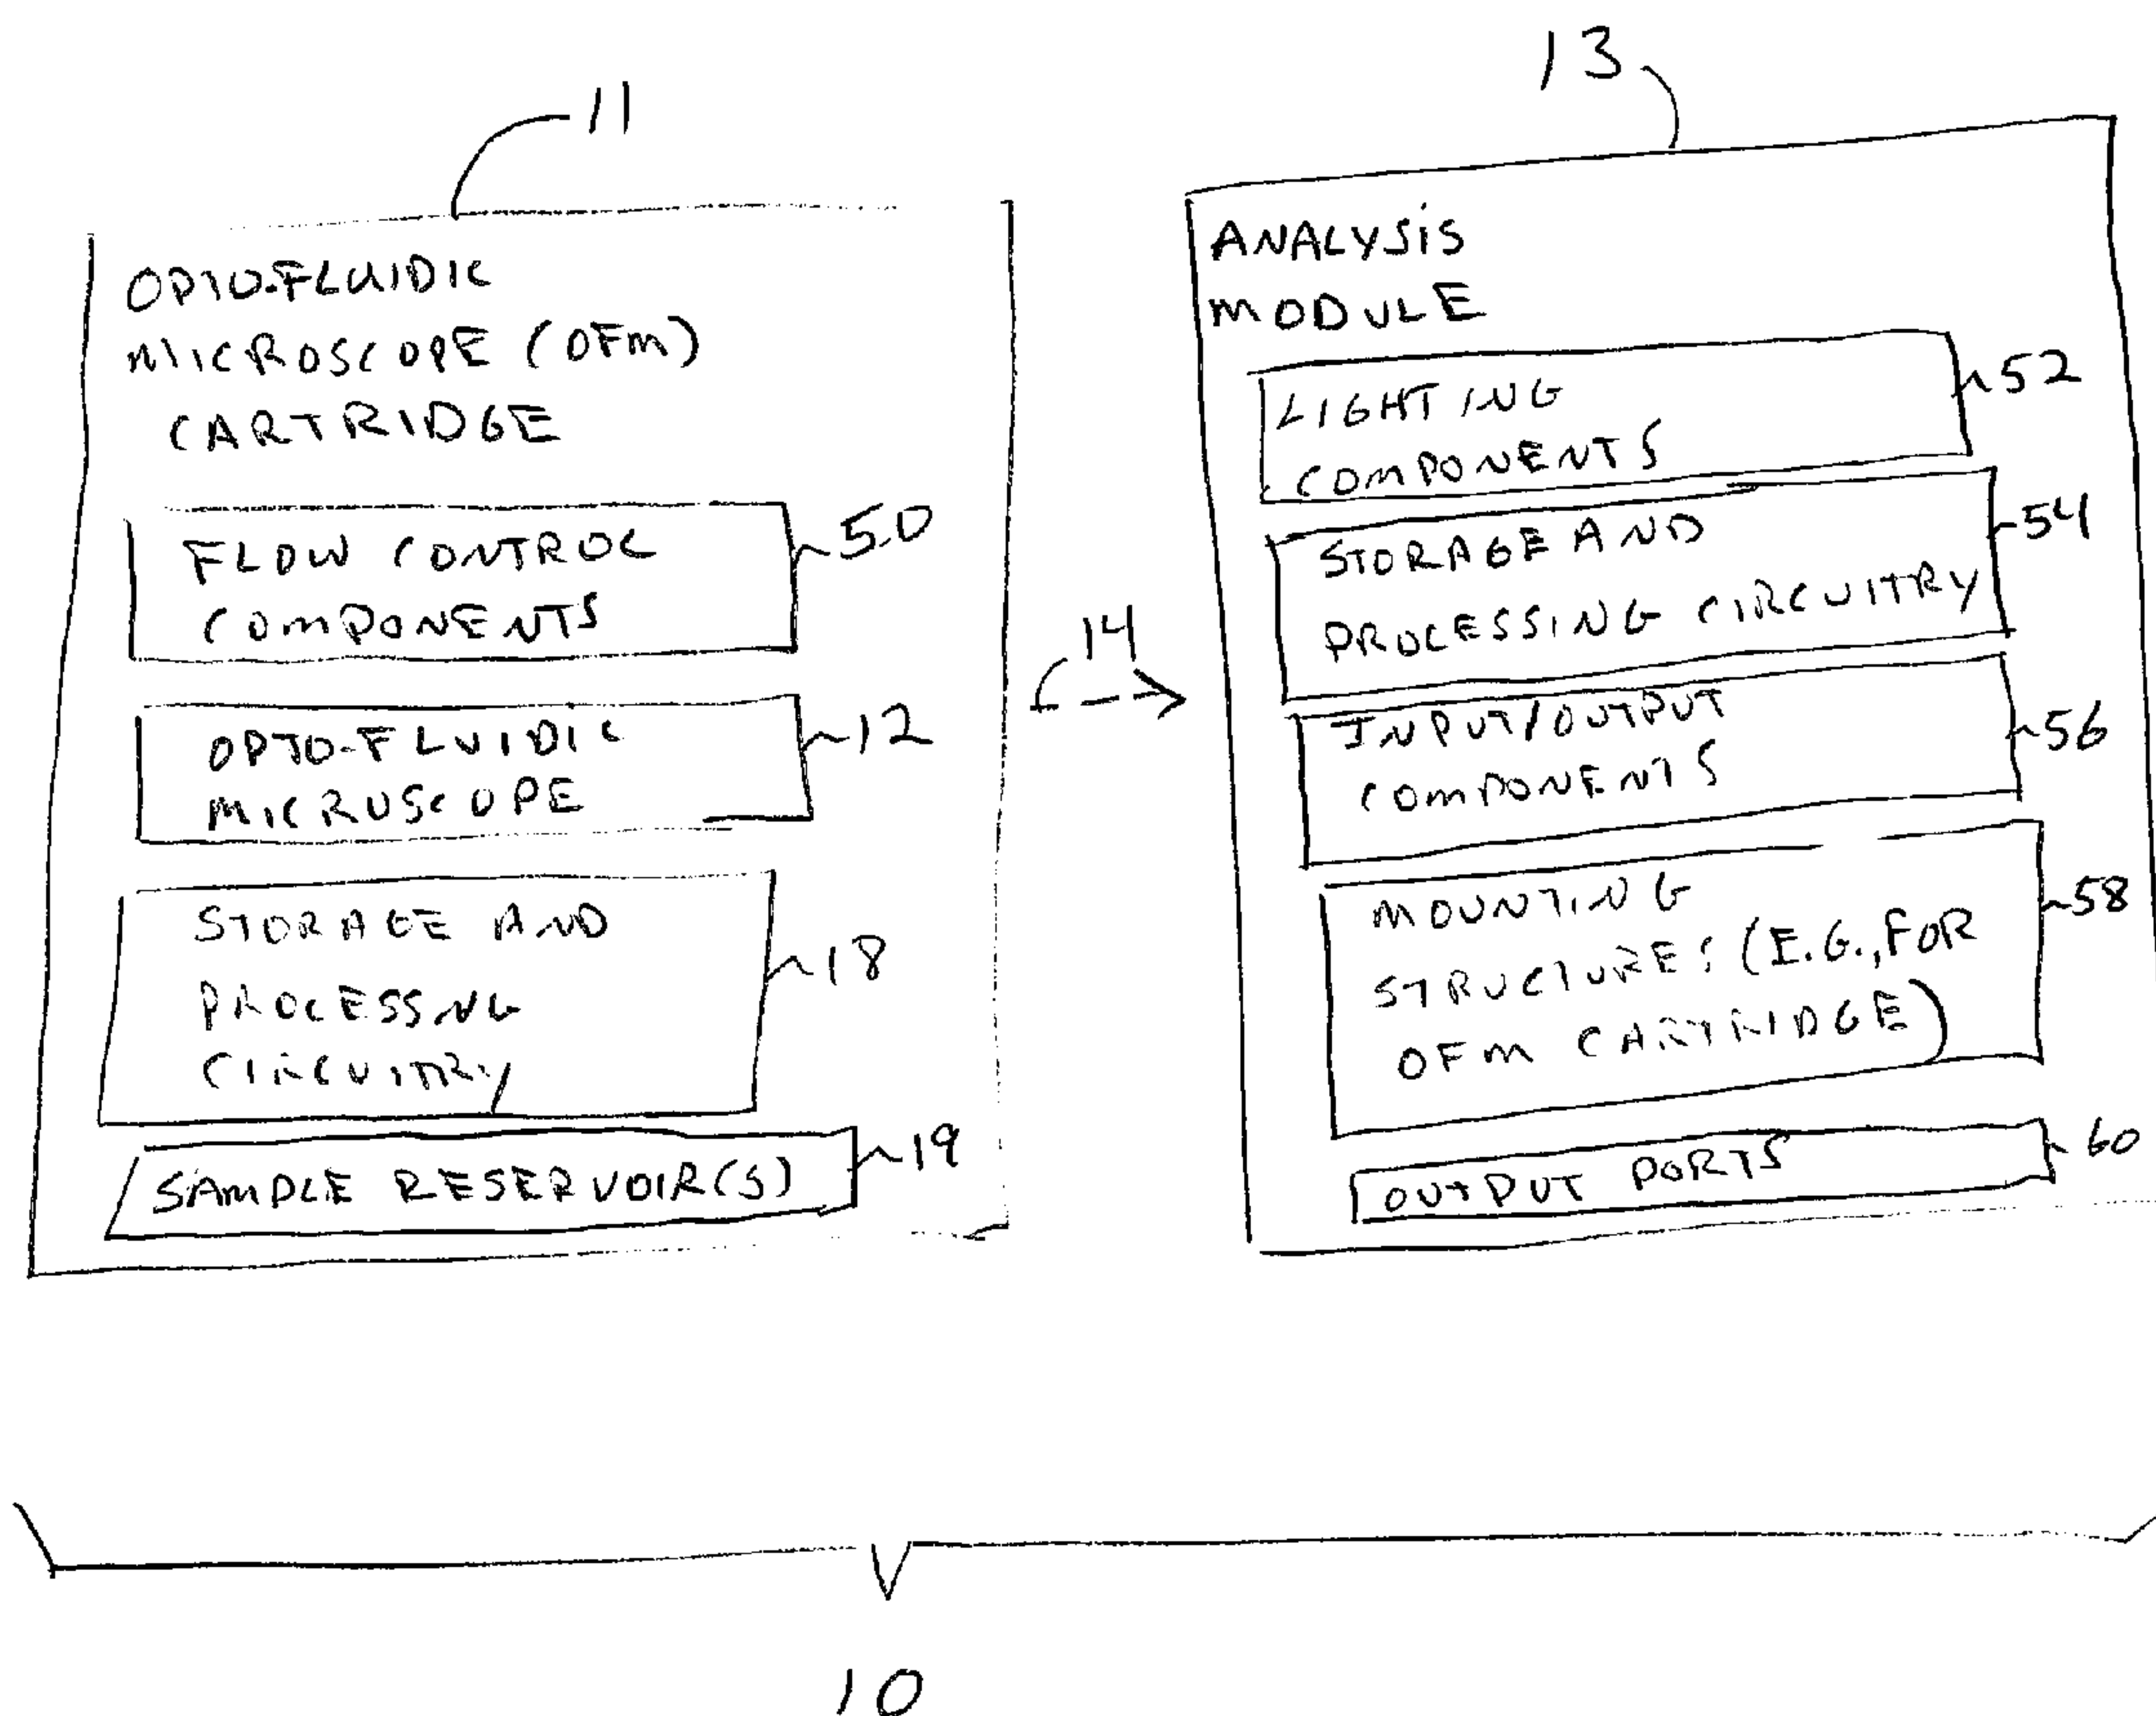 11
OPTO-FLUIDIC
MICROSCOPE (OFM)
CARTRIDGE
FLOW CONTROL
COMPONENTS
50
OPTO-FLUIDIC
MICROSCOPE
12
STORAGE AND
PROCESSING
CIRCUITRY
18
SAMPLE RESERVOIR(S)
19
14
13
ANALYSIS
MODULE
LIGHTING
COMPONENTS
52
STORAGE AND
PROCESSING CIRCUITRY
54
INPUT/OUTPUT
COMPONENTS
56
MOUNTING
STRUCTURES (E.G., FOR
OFM CARTRIDGE)
58
OUTPUT PORTS
60
10